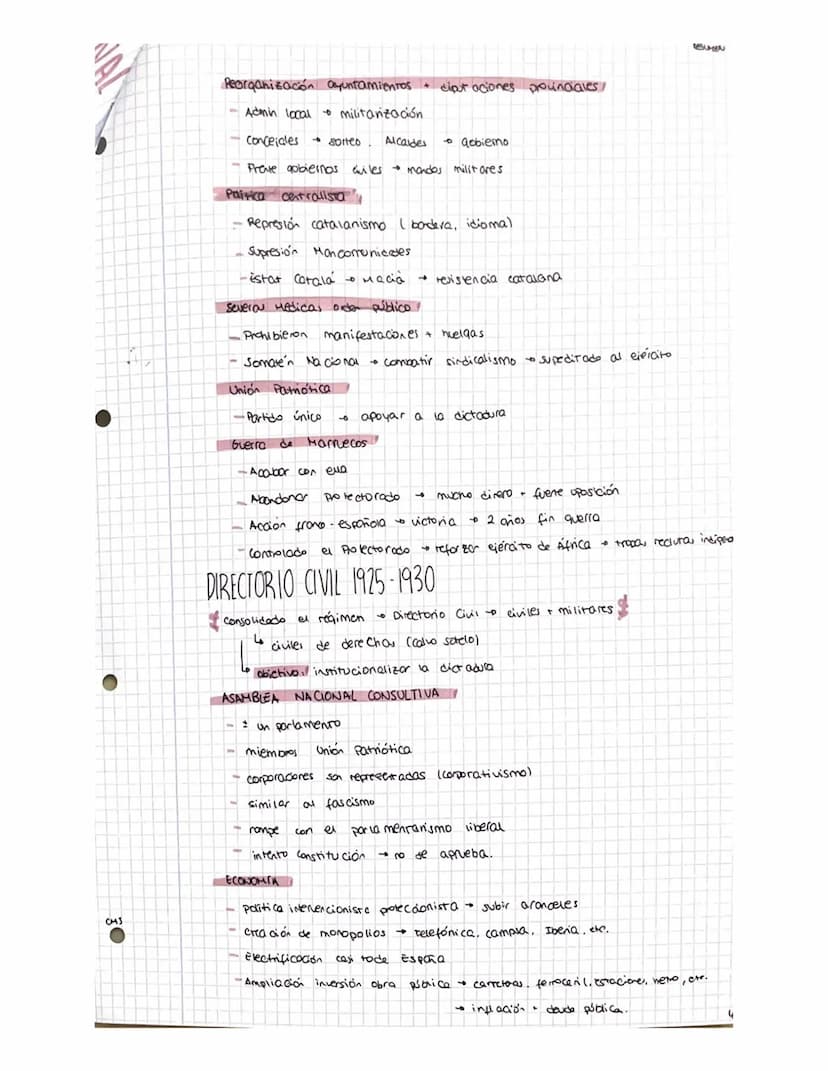 RESUMEN
Reorganización ayuntamientos + diputaciones provinciales
- Admin local → militarización
- Concejales → sorteo. Alcaldes → gobierno
- gobiernos civiles → mandos militares
Política centralista
- Represión catalanismo (bandera, idioma)
- Supresión Mancomunidades
- Estat Catalá → Macià → resistencia catalana
Severas Medidas orden público
- Prohibieron manifestaciones + huelgas
- Somatén Nacional → combatir sindicalismo → supeditado al ejército
Unión Patriótica
- Partido único → apoyar a la dictadura
Guerra de Marruecos
- Acabar con ella
- Abandonar Protectorado → mucho dinero + fuerte oposición
- Acción franco-española → victoria → 2 años fin guerra
- Controlado el Protectorado → reforzar ejército de África → tropas reclutas
DIRECTORIO CIVIL 1925-1930
Consolidado el régimen → Directorio Civil → civiles + militares
↳ civiles de derechas (calvo sotelo)
↳ objetivo: institucionalizar la dictadura
ASAMBLEA NACIONAL CONSULTIVA
- ± un parlamento
- miembros Unión Patriótica
- corporaciones son representadas (corporativismo)
- similar al fascismo
- rompe con el parlamentarismo liberal
- intento constitución → no se aprueba.
ECONOMÍA
- política intervencionista proteccionista → subir aranceles
- creación de monopolios → telefónica, campsa, Iberia, etc.
CMS
- Electrificación casi toda España
- Ampliación inversión obra pública → carreteras, ferrocarril, estaciones, metro, etc.
→ inflación + deuda pública.